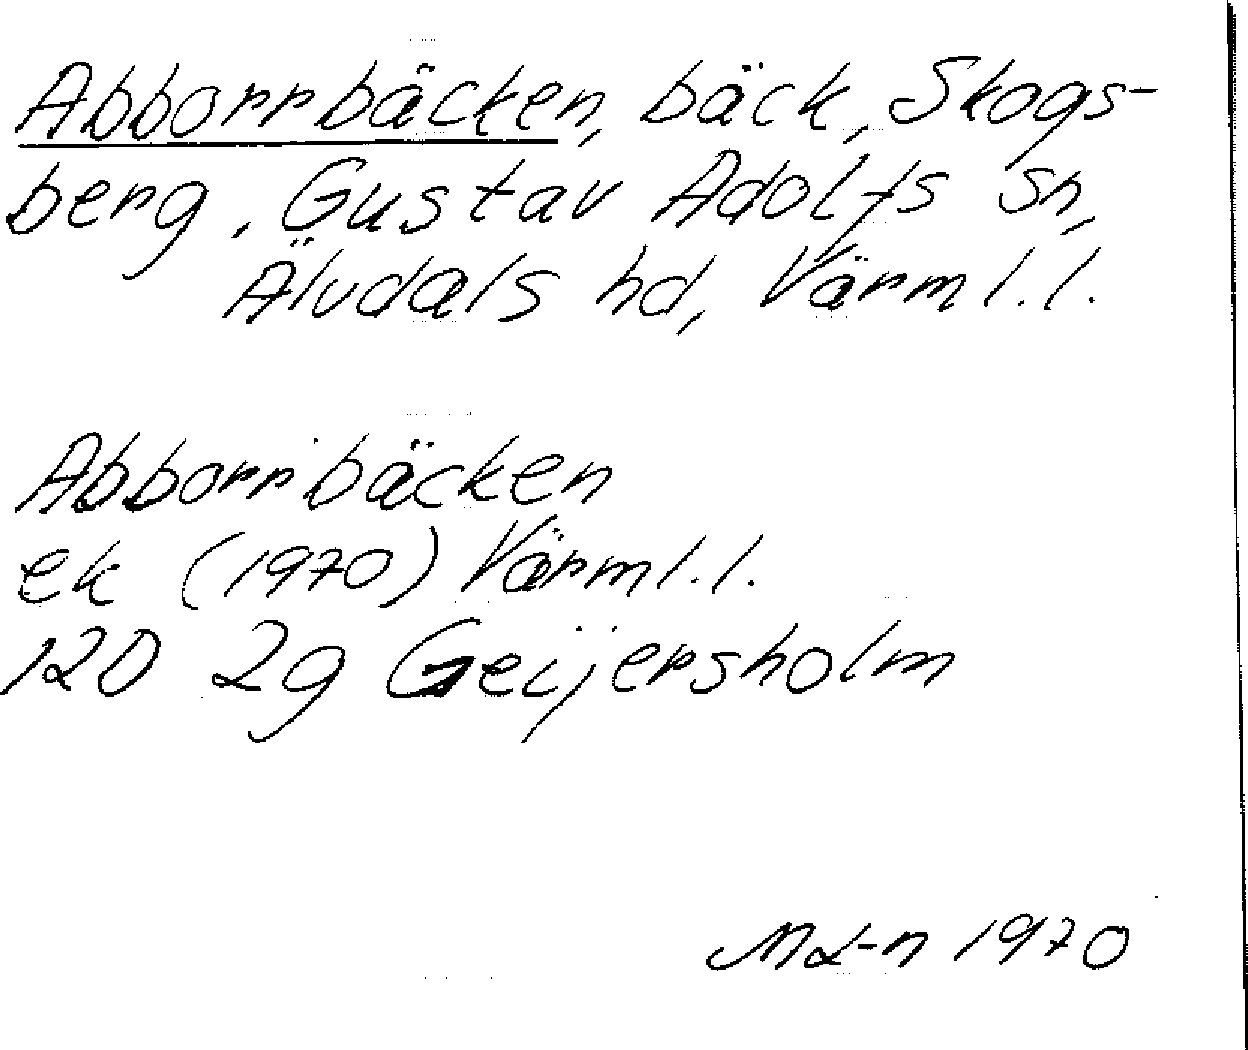 Abborrbäcken, bäck, Skogs-
berg, Gustav Adolfs sn,
Älvdals hd, Värml. l.
Abborrbäcken
ek (1970) Värml. l.
12D 2g Geijersholm
ML-n 1970